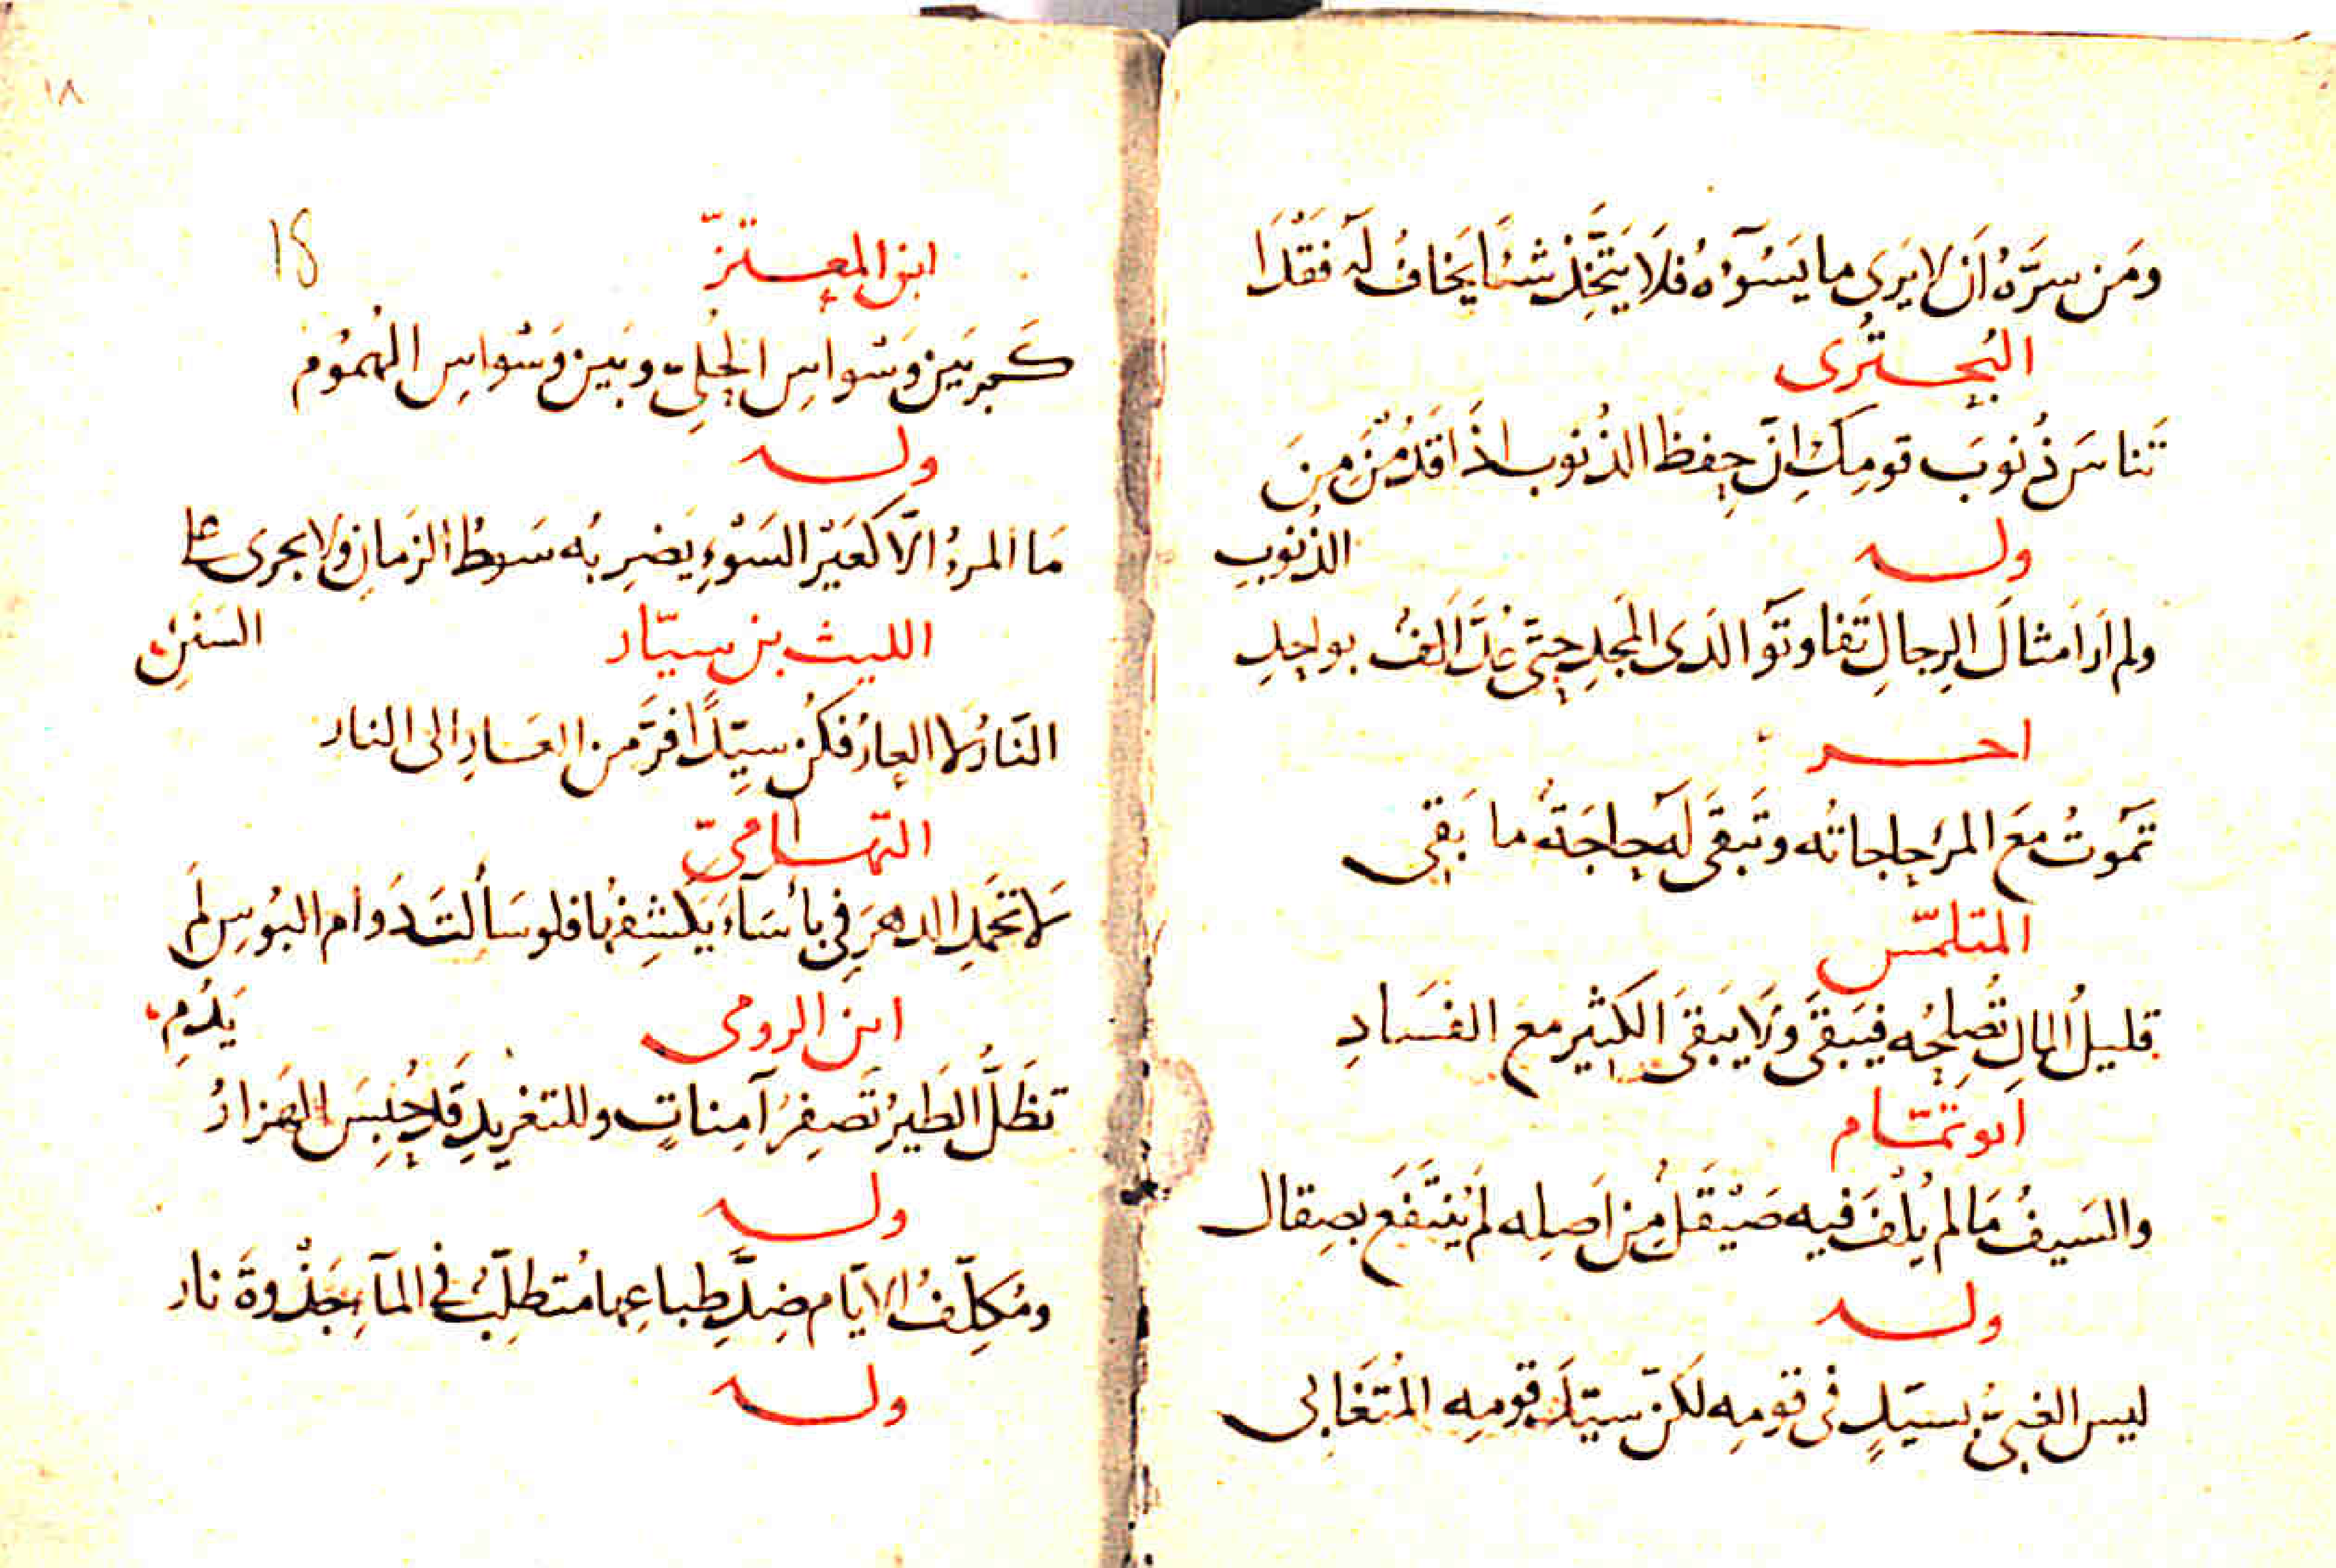 ومَن سرَّهُ اَن لا يَرى ما يَسُوٓءُهُ فلَا يَتَّخِذ شئًا يَخافُ لَه فَقْدَا
البُحترُى
تَناسَ ذُنوبَ قومِكِ انّ حِفظَ الذُنوب اذَا قَدُمْنَ مِنَ
الذُنوبِ
وله
ولم اَرَ اَمثالَ الرِجالِ تَفاوتَوا لَدَى المَجدِ حتىَّ عُدَّ اَلفُ بواحِدِ
اخر
تَموتُ مَعَ المرء حاجاتُه وتَبقىَ لَه حاجَةٌ ما بَقِى
المتلمّس
قليلُ المالِ تُصلِحُه فيَبقىَ ولَا يَبقىَ الكثير مع الفَسَادِ
ابو تمّام
والسَيفُ مَا لم يُلفَ فيه صَيْقَلٌ مِن اَصلِه لم يَنتَفَع بصِقال
وله
ليس الغبىُّ بسيّدٍ فى قومِه لكنّ سيّدَ قومِه المُتَغَابى
١٨
18
ابن المعتزّ
كم بَين وَسْواسِ الحُلِىّ وبَين وَسْواسِ الهُمُوم
وله
مَا المرءُ الّا كَعَيْر السَوْءِ يَضرِبُه سَوطُ الزَمانِ ولا يجرى على
السَنَنِ
الليث بن سيّار
النَارُ لَا العارُ فكُن سيِّدًا فَرَّ مَن العَارِ الى النار
التهامىّ
لَا تَحمَدِ الدهرَ فِى بأسَآءَ يَكشِفُها فلو سَألتَ دَوام البُوسِ لَم
يَدُمِ
ابن الرومى
تظَلُّ الطَيرُ تَصفِرُ آمِناتٍ وللتغريدِ قَد حُبِسَ الهَزارُ
وله
ومُكلّفُ الايّام ضِدَّ طِباعِها مُتطلِّبٌ فى المآءِ جَذْوةَ نار
وله